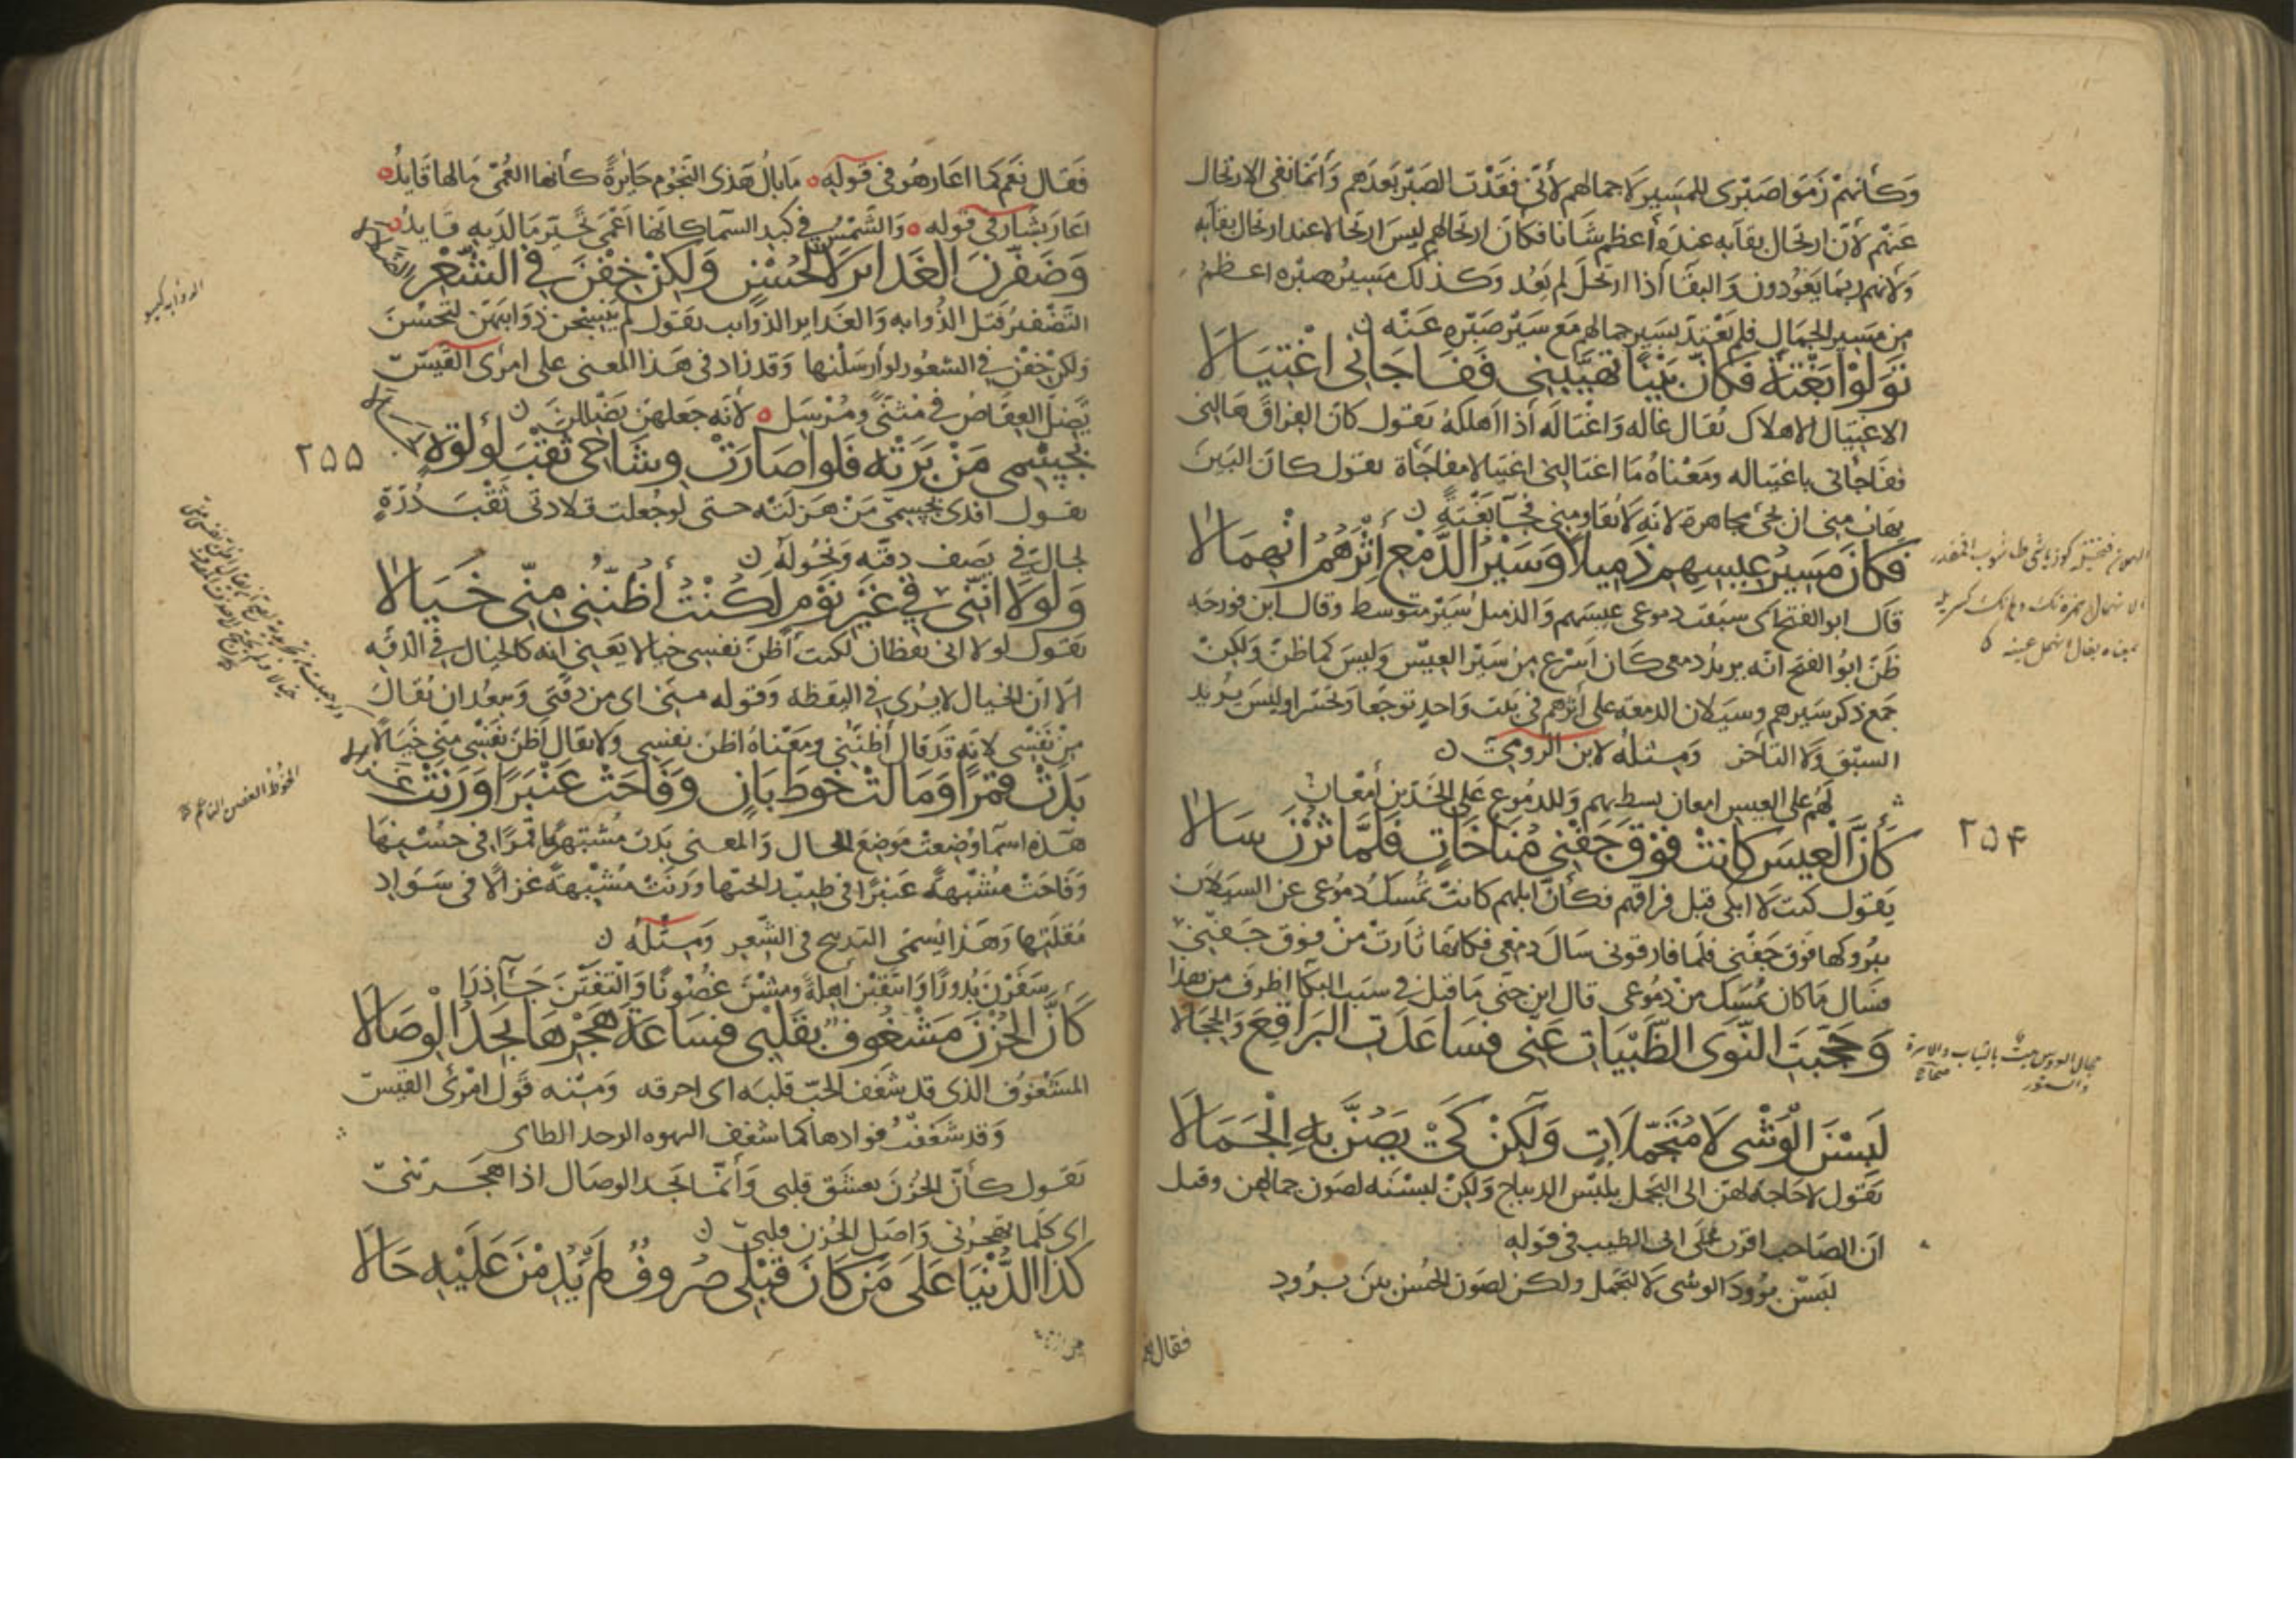 وَكأنهمْ زَمّوا صَبْرى للمَسِير لا جمالهم لأنّى فقَدْتُ الصَبْرَ بَعدَهم وَأنمّا نفى الارتحال
عَنْهم لأنّ ارتحال بقآبه عندَه أعظم شَانا فكأنّ ارتحالهم ليسَ ارتحالا عند ارتحال بقآبه
وَلأنهم ربمَا يَعُودون وَالبقَا أذا ارتحلَ لم يَعُد وَكذلك مَسِيرُ صبْره اعظمُ
مِن مَسِير الجمَال فلم يَعْتدّ بسَير جمالهم مَعَ سَيْر صَبْره عَنْه
تَوَلّوْا بَغْتَةً فَكأنّ بَيْنًا تهَيَّبَنِى فَفَاجَانِى اغْتِيَالَا
الاغتيال الاهلاك يُقال غاله وَاغتاله أذا أهلكهُ يَقول كانَ الفراقَ هَابنى
ففَاجأنى باغتياله ومَعْناهُ مَا اغتالنى اغتيالا مفاجَأة يقول كانَ البَين
يهَابُ منى ان يجئ مجاهرة لانّه لا يُقاومنِى فجآ بَغْتةً
فَكَانَ مَسِيرُ عِيسِهِم ذَمِيلًا وَسَيْرُ الدَّمْعِ إثْرَهُمُ انْهِمَالَا
قال ابو الفتح اى سبَقت دموعى عيسَهم وَالذميل سَيْر متوسط وقال ابن فورجه
ظَنّ ابوُ الفتح انّه يريدُ دمعى كانَ أسْرع مِن سَيْر العِيسْ وَليسَ كماظنّ وَلكِنْ
جمَع ذكر سَيرهم وسيَلان الدمعه على أثرهم فى بَيت وَاحدٍ توجّعًا وَتحَسّرا وليسَ يُريد
السبْقَ وَلا التأخر ومِثلهُ لابن الرومِىّ
لهُم على العيس امعان يسطّ بهم وَللدمُوع عَلَى الخَدّين أمْعانُ
كَأنَّ الْعِيسَ كانَتْ فَوْقَ جَفْنِى مُنَاخَاتٍ فَلَمَّا ثُرْنَ سَالَا
٢٥۴
يَقول كنت لا ابكى قبل فراقهم فكأنّ ابلهم كانتْ تُمْسكُ دمُوعى عن السيلان
ببُروكها فَوقَ جَفْنى فلما فارقونى سَالَ دمْعى فكانها ثارَتْ مِنْ فوق جَفْنى
فسَال مَا كان يُمْسَك منْ دمُوعى قال ابن جنى مَا قيل فى سَبب البكآ اظرفَ من هذا
وَحَجَّبَتِ النَّوَى الظَّبْيَاتِ عَنِّى فسَاعَدَتِ البَرَاقِعَ وَالحِجَالَا
لَبِسْنَ الْوَشْى لَا مُتَجَمِّلَاتٍ وَلَكِنْ كَىْ يَصُنَّ بِهِ الْجَمَالَا
يَقول لا حَاجه لهنّ الى التجمل بلبْس الديباج وَلكِنْ لبسْنَه لصَون جمالهن وقيل
انّ الصَاحب على ابى الطيب فى قوله
لبَسْن برُودَ الوشى لا لتجمّل ولكن لصَون الحُسن بَينَ بُرُودِ
فقال نعم
فَقَال نَعَم كَمَا اعَارهُو فى قَوْله مَا بَالُ هَذى النجُوم حَايِرةً كأنها العُمْى مَالها قَايِدُ
اعَارَ بشار فى قوله وَالشَمْسُ فى كبد السَما كانّها اعْمَى تحَيّرَ مَا لدَيهِ قَايدُ
وَضَفَّرْنَ الغَدَايرَ لَا لِحُسْنٍ وَلَكِنْ خِفْنَ فِى الشَّعْرِ الضَّلَالَا
التَضْفيرُ فَتل الذُوابه وَالغَدايرُ الذوايب يَقول لم يَنسِجْنَ ذوَايبَهن لتحْسُن
وَلكنْ خِفْن فى الشعُور لو أرسَلنها وَقد زاد فى هَذا المعنى على امرئ القَيس
يَضِلّ العِقَاصُ فى مُثنّىً ومُرْسَلِ لأنّه جَعلهنّ يَضْللنَ
بِجِسْمِى مَنْ بَرَتْهُ فَلَو اصَارَتْ وِشَاحِى ثَقْبَ لُؤلُؤةٍ لَجَالَا
٢٥٥
يقول افدى بجسمى مَنْ هَزلتْه حتى لو جُعلت قلادتى ثَقْبَ دُرّةٍ
لجالتْ يَصف دقّته وَنحُوله
وَلَولَا انَّنِى فِى غَيْرِ نَوْمٍ لَكُنْتُ أَظُنُّنِى مِنِّى خَيَالَا
يَقول لولا انى يقظان لكنت أظنّ نفسى خيالا يَعنى انه كالخيال فى الدقّه
الّا انّ الخيال لا يُرى فى اليقظه وَقوله منى اى من دقّتى وَيبعُد ان يُقال
مِنْ نَفْسى لانّه قد قال أظنّنى ومَعْناهُ اظنّ نفسى ولا يقال أظنّ نَفسى منّى خيَالًا
بَدَتْ قَمَرًا وَمَالَتْ خُوطَ بَانٍ وَفَاحَتْ عَنْبَرًا وَرَنَتْ غَزَالَا
هَذه اسَما وُضِعتْ مَوضع الحال وَالمعنى بَدت مُشبهةً قمرًا فى حُسْنِهَا
وَفاحَتْ مُشْبهةً عَنبرًا فى طيب رايحتها وَرنَتْ مُشْبهةً غزالًا فى سَوَادِ
مُقلَتِها وَهَذا يُسمّى التدبيج فى الشعر وَمِثْلُه
سَفَرْنَ بُدُورًا وَانتقَبْنَ اهِلةً ومِسْنَ غُصُونًا وَالْتَفَتْنَ جَآذِرَا
كَأنَّ الحُزْنَ مَشْغُوفٌ بِقَلْبِى فَسَاعَةَ هَجْرِهَا يَجِدُ الْوِصَالَا
المشغوُف الذى قد شَغف الحبّ قلبَه اى احرقه وَمِنْه قَول امْرئ القيس
وَقد شَغَفْتُ فوادها كما شغف المهنوه الرجل الطالى
يَقول كأنّ الحُزنَ يعشق قلبى وَأنمّا يجد الوصَال اذا هجَرتنىّ
اى كلّما تهجرُنى وَاصَل الحُزن قلبى
كَذَا الدُّنْيَا عَلَى مَن كَانَ قَبْلِى صُرُوفٌ لَم يُدِمْنَ عَلَيْهِ حَالَا
الخُوطُ الغصن الناعم